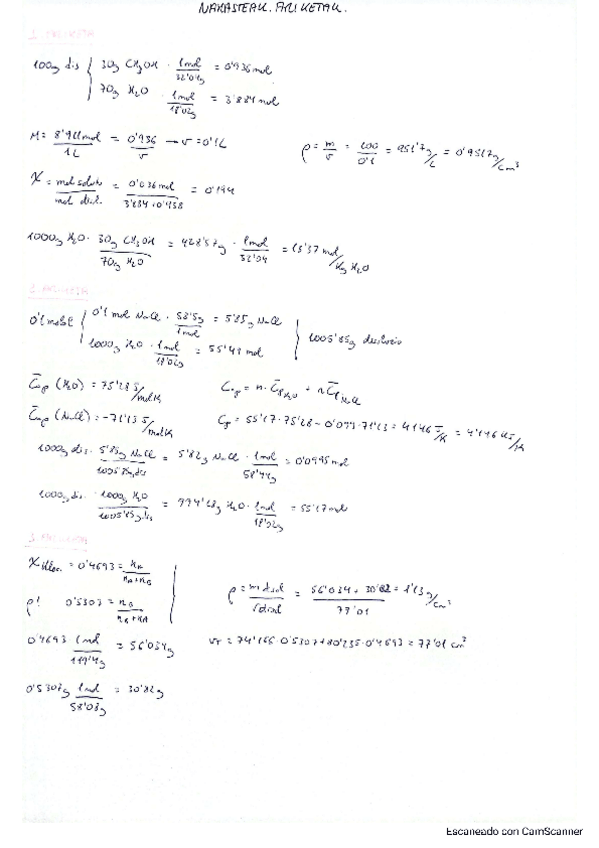 NAHASTEAK. ARIKETAK.
1. ARIKETA
100g dis { 30g CH3OH · 1mol/32'04g = 0'936 mol
70g H2O · 1mol/18'02g = 3'884 mol
M = 8'911mol/1L = 0'936/v → v = 0'1L
ρ = m/v = 100/0'1 = 951'7 g/L = 0'9517 g/cm³
X = mol solute/mol disol. = 0'936 mol/3'884+0'938 = 0'194
1000g H2O · 30g CH3OH/70g H2O = 428'57g · 1mol/32'04 = 13'37 mol/Kg H2O
2. ARIKETA
0'1 mol NaCl · 58'5g/1mol = 5'85g NaCl
1000g H2O · 1mol/18'02g = 55'49 mol
1005'85g disoluzio
C̄p (H2O) = 75'28 J/molK
Cp = n · C̄p H2O + n C̄p NaCl
C̄p (NaCl) = -71'13 J/molK
Cp = 55'17 · 75'28 - 0'099 · 71'13 = 4146 J/K = 4'146 kJ/K
1000g dis · 5'85g NaCl/1005'85g dis = 5'82g NaCl · 1mol/58'44g = 0'0995 mol
1000g dis · 1000g H2O/1005'85g dis = 994'18g H2O · 1mol/18'02g = 55'17 mol
3. ARIKETA
= 0'4693 = nA/nA+nB
ρ? 0'5307 = nB/nB+nA
ρ = m disol/v disol = 56'034 + 30'82/77'01 = 1'13 g/cm³
0'4693 1mol/119'4g = 56'034g
vT = 74'166 · 0'5307 + 80'235 · 0'4693 = 77'01 cm³
0'5307g 1mol/58'08g = 30'82g
Escaneado con CamScanner